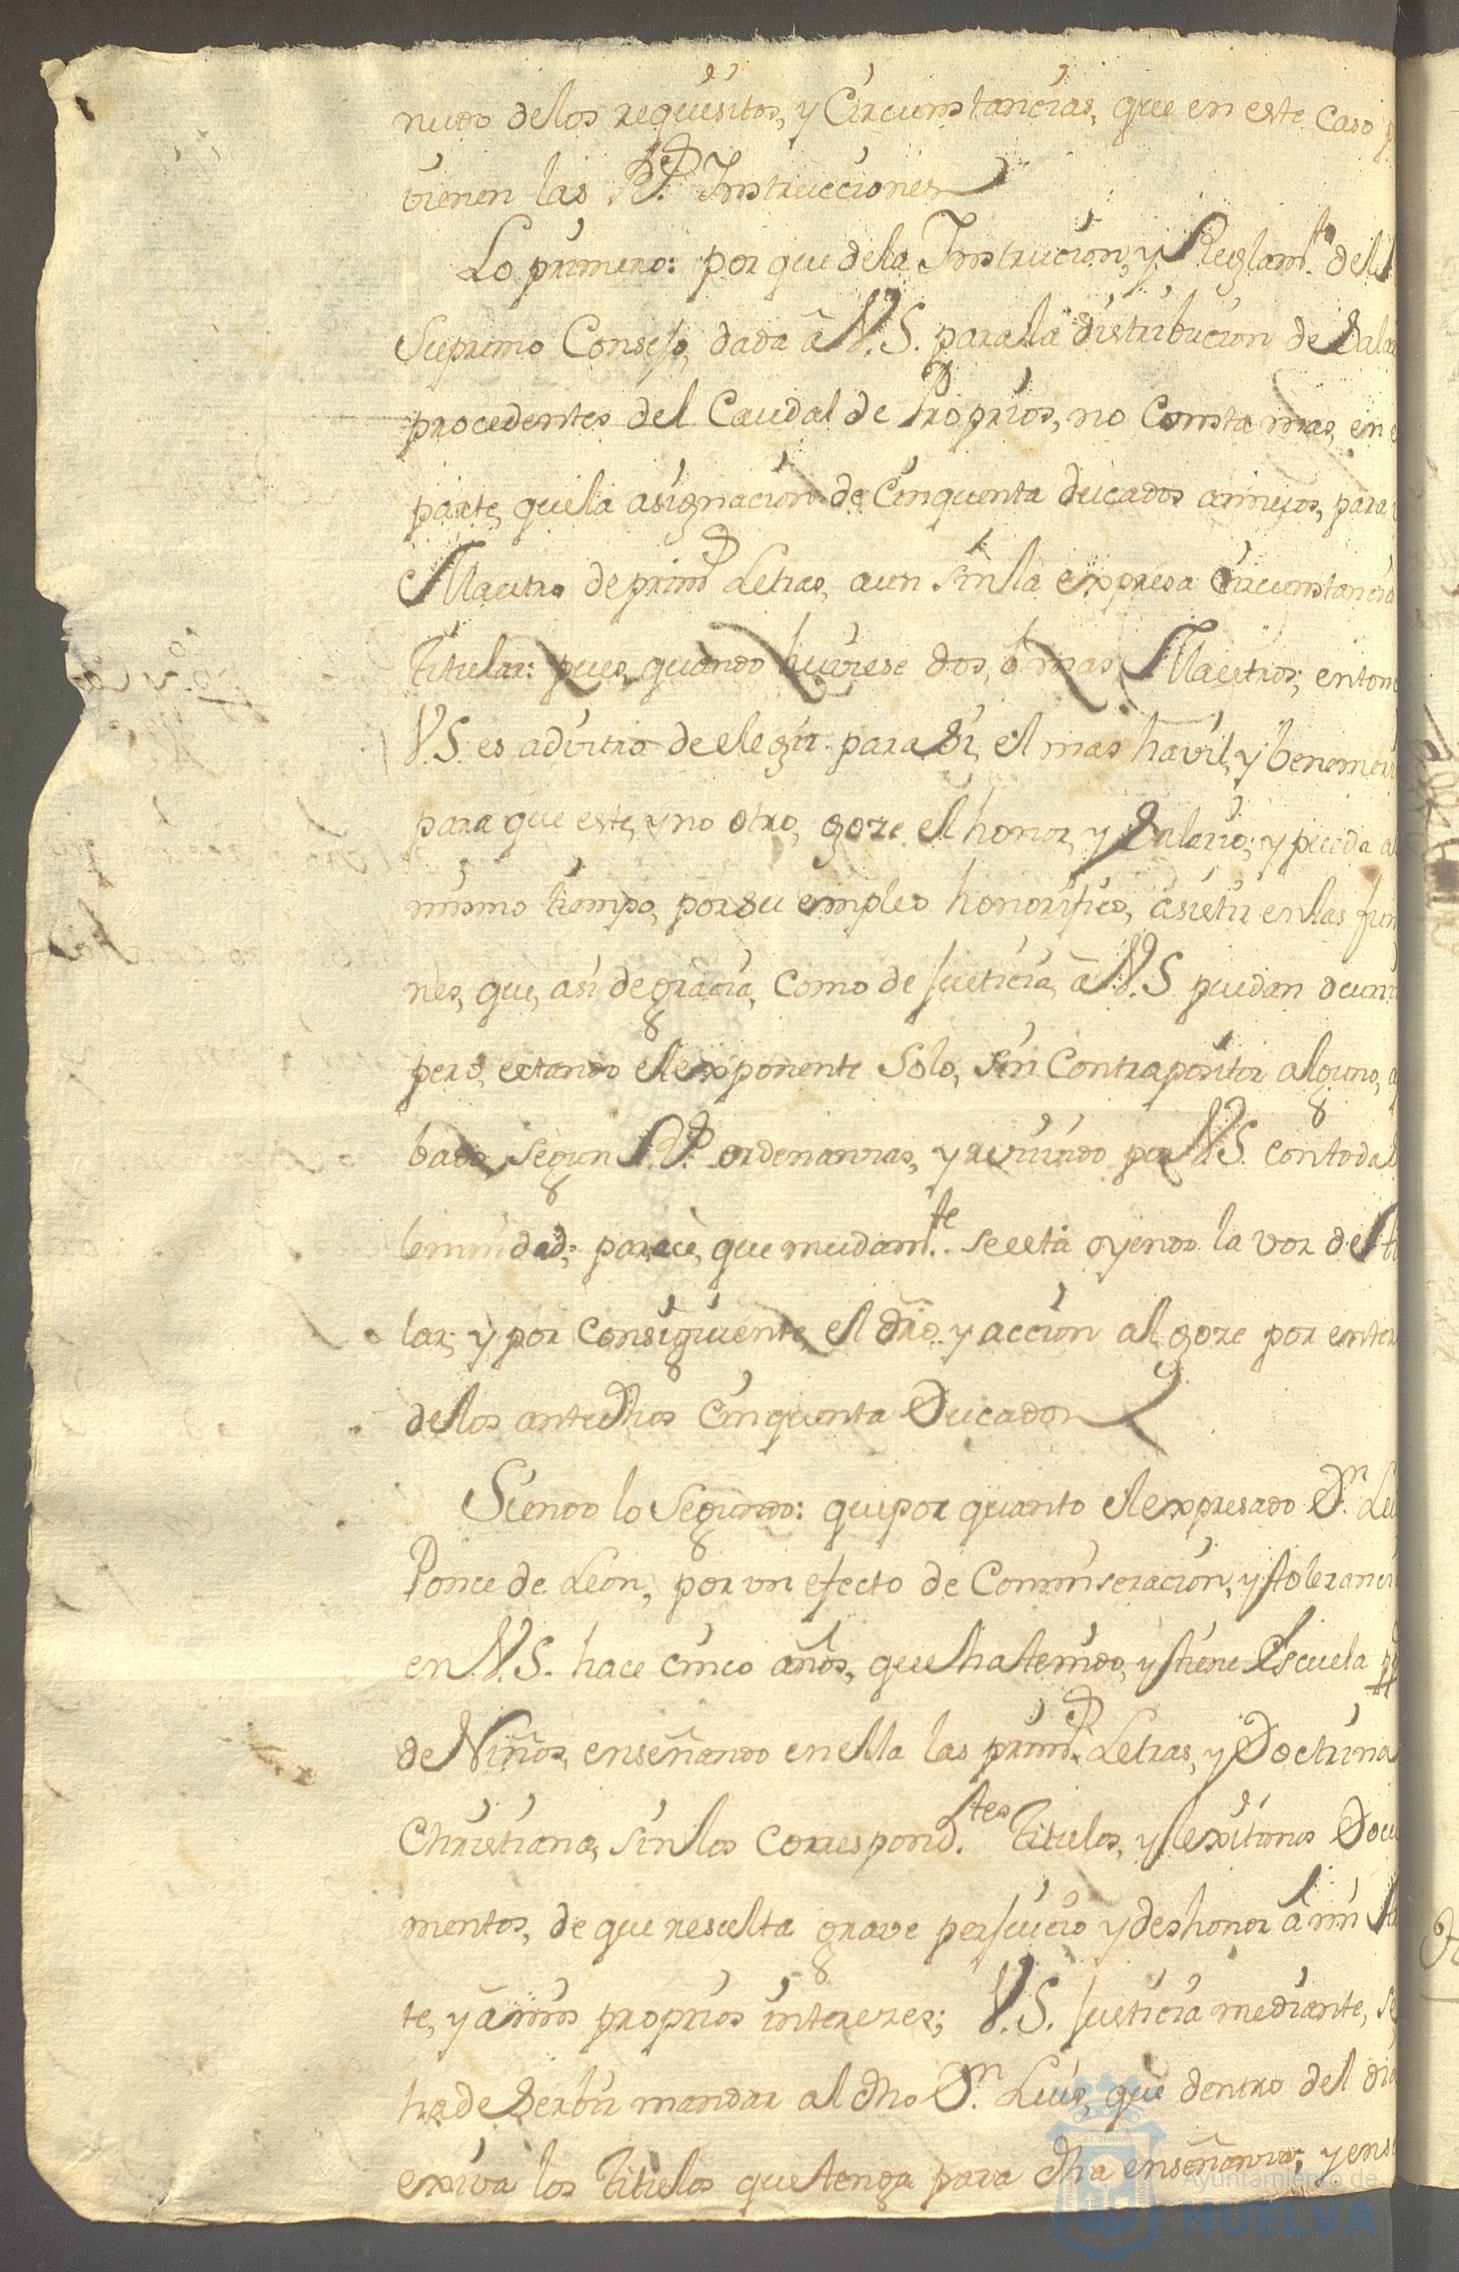 nudo delos requisitos, y Circunstancias, que en este Caso
vienen las R.^s Instrucciones
Lo primero: por que dela Instruccion, y Reglam.^to del
Supremo Consejo, dada â V.S. para la distribucion de Sala
procedentes del Caudal de Proprios, no Consta mas, en
parte, que la asignacion de Cinquenta ducados annuos, para
Maestro de prim.^s Letras, aun sin la expresa circunstancia
Titular: pues, quando huviese dos, ò mas Maestros; enton
V.S. es advitro de elegir para Si, el mas havil, y benemeri
para que este, y no otro, goze el honor, y Salario; y pueda a
mismo tiempo, por su empleo honorifico, asistir en las fun
nes, que, asi de gracia, Como de Justicia, â V.S. puedan
pero, estando el exponente Solo, sin Contrapositor alguno,
bado segun R.^s ordenanzas, y recivido por V.S. con toda
lemnidad; parece, que mudam.^te se està oyendo la voz de Ti
lar; y por Consiguiente, el dro. y accion al goze por enter
delos antedhos Cinquenta Ducados
Siendo lo Segundo: que por quanto el expresado D.^n Lu
Ponce de Leon, por un efecto de Comiseracion, y toleranci
en V.S. hace cinco años, que ha tenido, y tiene Escuela pp
de Niños, enseñando en ella las prim.^s Letras, y Doctrina
Christiana, sin los Correspond.^tes Titulos, y lexitimos Docu
mentos, de que resulta grave perjuicio y deshonor â mi
te, y â mis proprios interezes; V.S. Justicia mediante, se
ha de Serbir mandar al dho D.^n Luis, que dentro del dia
exiva los Titulos que tenga para dha enseñanza; y en
Ayuntamiento de
HUELVA